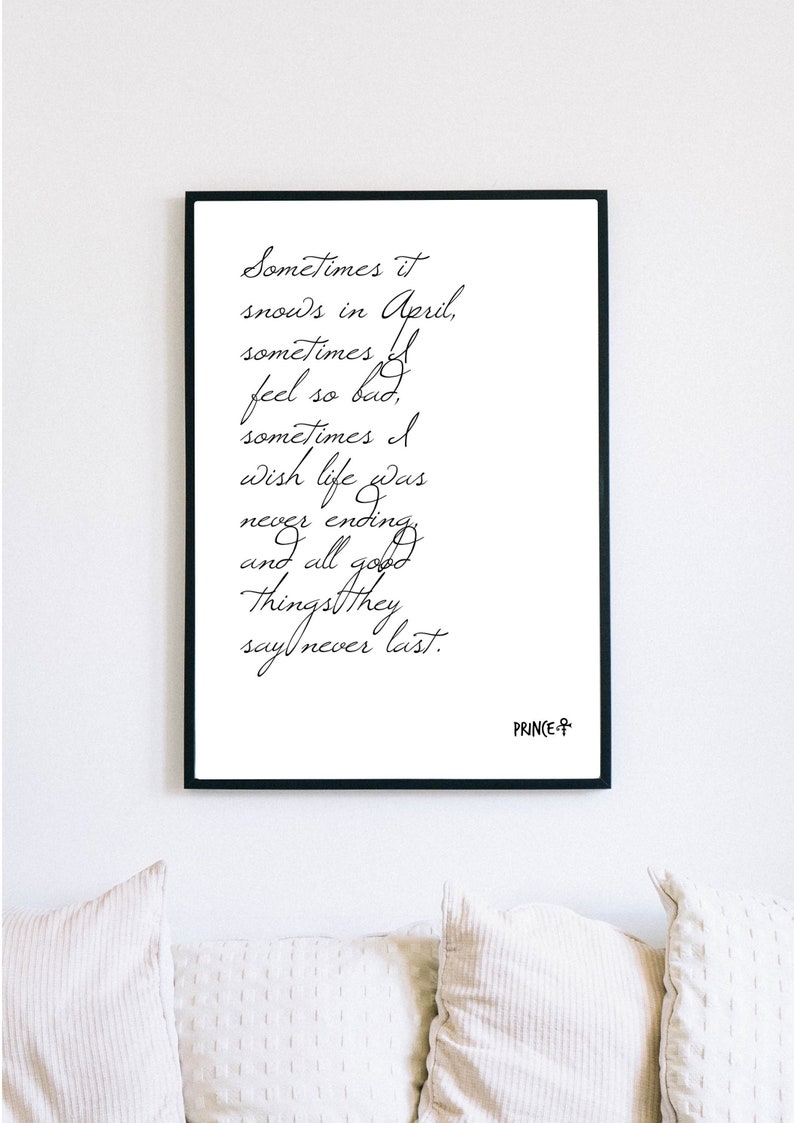 Sometimes it
snows in April,
sometimes I
feel so bad,
sometimes I
wish life was
never ending,
and all good
things they
say never last.
PRINCE